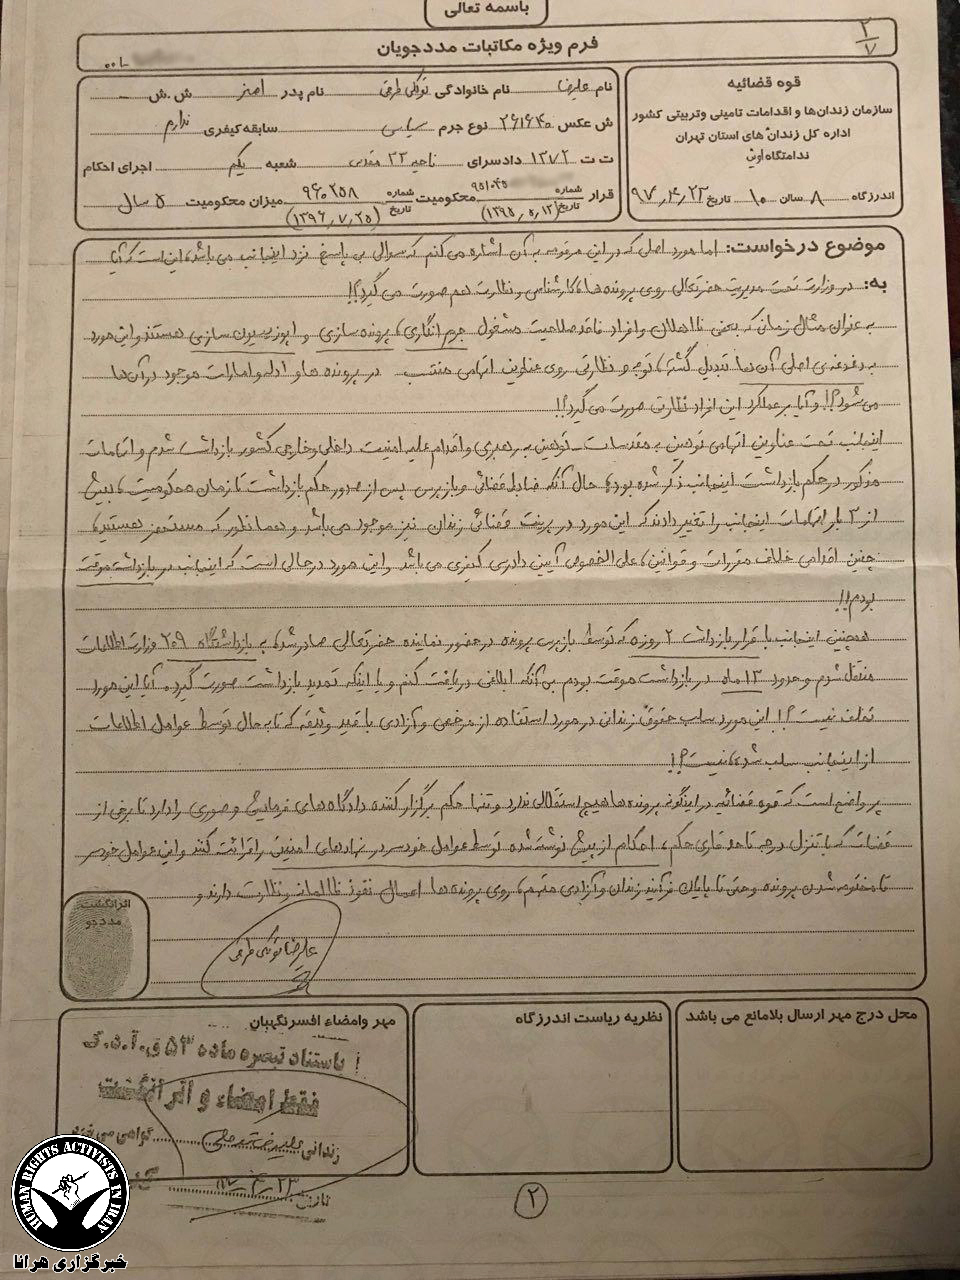 باسمه تعالی
۲/۷
فرم ویژه مکاتبات مددجویان
قوه قضائیه
سازمان زندان‌ها و اقدامات تامینی وتربیتی کشور
اداره کل زندان های استان تهران
ندامتگاه اوین
اندرزگاه ۸ سالن ۱۰ تاریخ ۹۷٫۴٫۲۳
نام علیرضا نام خانوادگی توکلی طرقی نام پدر اصغر ش.ش
ش عکس ۲۶۱۶۴۰ نوع جرم سیاسی سابقه کیفری ندارم
ت ت ۱۳۷۲ دادسرای ناحیه ۳۳ مقدس شعبه یکم اجرای احکام
قرار شماره تاریخ (۱۳۹۵٫۵٫۱۲) محکومیت شماره ۹۶۰۲۵۸ تاریخ (۱۳۹۶٫۷٫۲۵) میزان محکومیت ۵ سال
موضوع درخواست: اما مورد اصلی که در این مرقومه به آن اشاره می کنم که سوالی بی پاسخ نزد اینجانب می باشد، این است که آیا
به: در وزارت تحت مدیریت حضرتعالی روی پرونده ها، کارشناسی و نظارت هم صورت می گیرد؟!
به عنوان مثال زمانی که بعضی نااهلان و افراد فاقد صلاحیت مشغول جرم انگاری، پرونده سازی و اپوزیسیون سازی هستند و این مورد
به دغدغه ی اصلی آن ها تبدیل گشته، توجه و نظارتی روی عناوین اتهامی منتسب در پرونده ها و ادله و امارات موجود در آن ها
می شود؟! و آیا بر عملکرد این افراد نظارتی صورت می گیرد؟!
اینجانب تحت عناوین اتهامی توهین به مقدسات، توهین به رهبری و اقدام علیه امنیت داخلی و خارجی کشور بازداشت شدم و اتهامات
مذکور در حکم بازداشت اینجانب ذکر شده بود، حال آنکه ضابط قضائی و بازپرس پس از صدور حکم بازداشت تا زمان محکومیت، بیش
از ۳ بار اتهامات اینجانب را تغییر دادند که این مورد در پرینت قضائی زندان نیز موجود می باشد و همانطور که مستحضر هستید،
چنین اقدامی خلاف مقررات و قوانین، علی الخصوص آیین دادرسی کیفری می باشد و این مورد درحالی است که اینجانب در بازداشت موقت
بودم!!
همچنین اینجانب با قرار بازداشت ۲ روزه که توسط بازپرس پرونده در حضور نماینده حضرتعالی صادر شد، به بازداشتگاه ۲۰۹ وزارت اطلاعات
منتقل شدم و حدود ۱۳ ماه در بازداشت موقت بودم بی آنکه ابلاغی دریافت کنم و یا اینکه تمدید بازداشت صورت گیرد. آیا این مورد
تخلف نیست؟! این مورد سلب حقوق زندانی در مورد استفاده از مرخصی و آزادی با قید وثیقه که تا به حال توسط عوامل اطلاعات
از اینجانب سلب شده، نیست؟!
پر واضح است که قوه قضائیه در اینگونه پرونده ها هیچ استقلالی ندارد و تنها حکم برگزار کننده دادگاه های فرمایشی و صوری را دارد تا برخی از
قضات که با تنزل درجه تا حد قاری حکم، احکام از پیش نوشته شده توسط عوامل خودسر در نهادهای امنیتی را قرائت کنند و این عوامل خودسر
تا مختومه شدن پرونده و حتی تا پایان فرآیند زندان و آزادی متهم، روی پرونده ها اعمال نفوذ ظالمانه و نظارت دارند و
علیرضا توکلی طرقی
اثرانگشت
مددجو
محل درج مهر ارسال بلامانع می باشد
نظریه ریاست اندرزگاه
مهر وامضاء افسرنگهبان
باستناد تبصره ماده ۵۳ ق.آ.د.ک
فقط امضاء و اثر انگشت
زندانی گواهی می شود
تاریخ ۹۷٫۴٫۲۳
۲
HUMAN RIGHTS ACTIVISTS IN IRAN
خبرگزاری هرانا